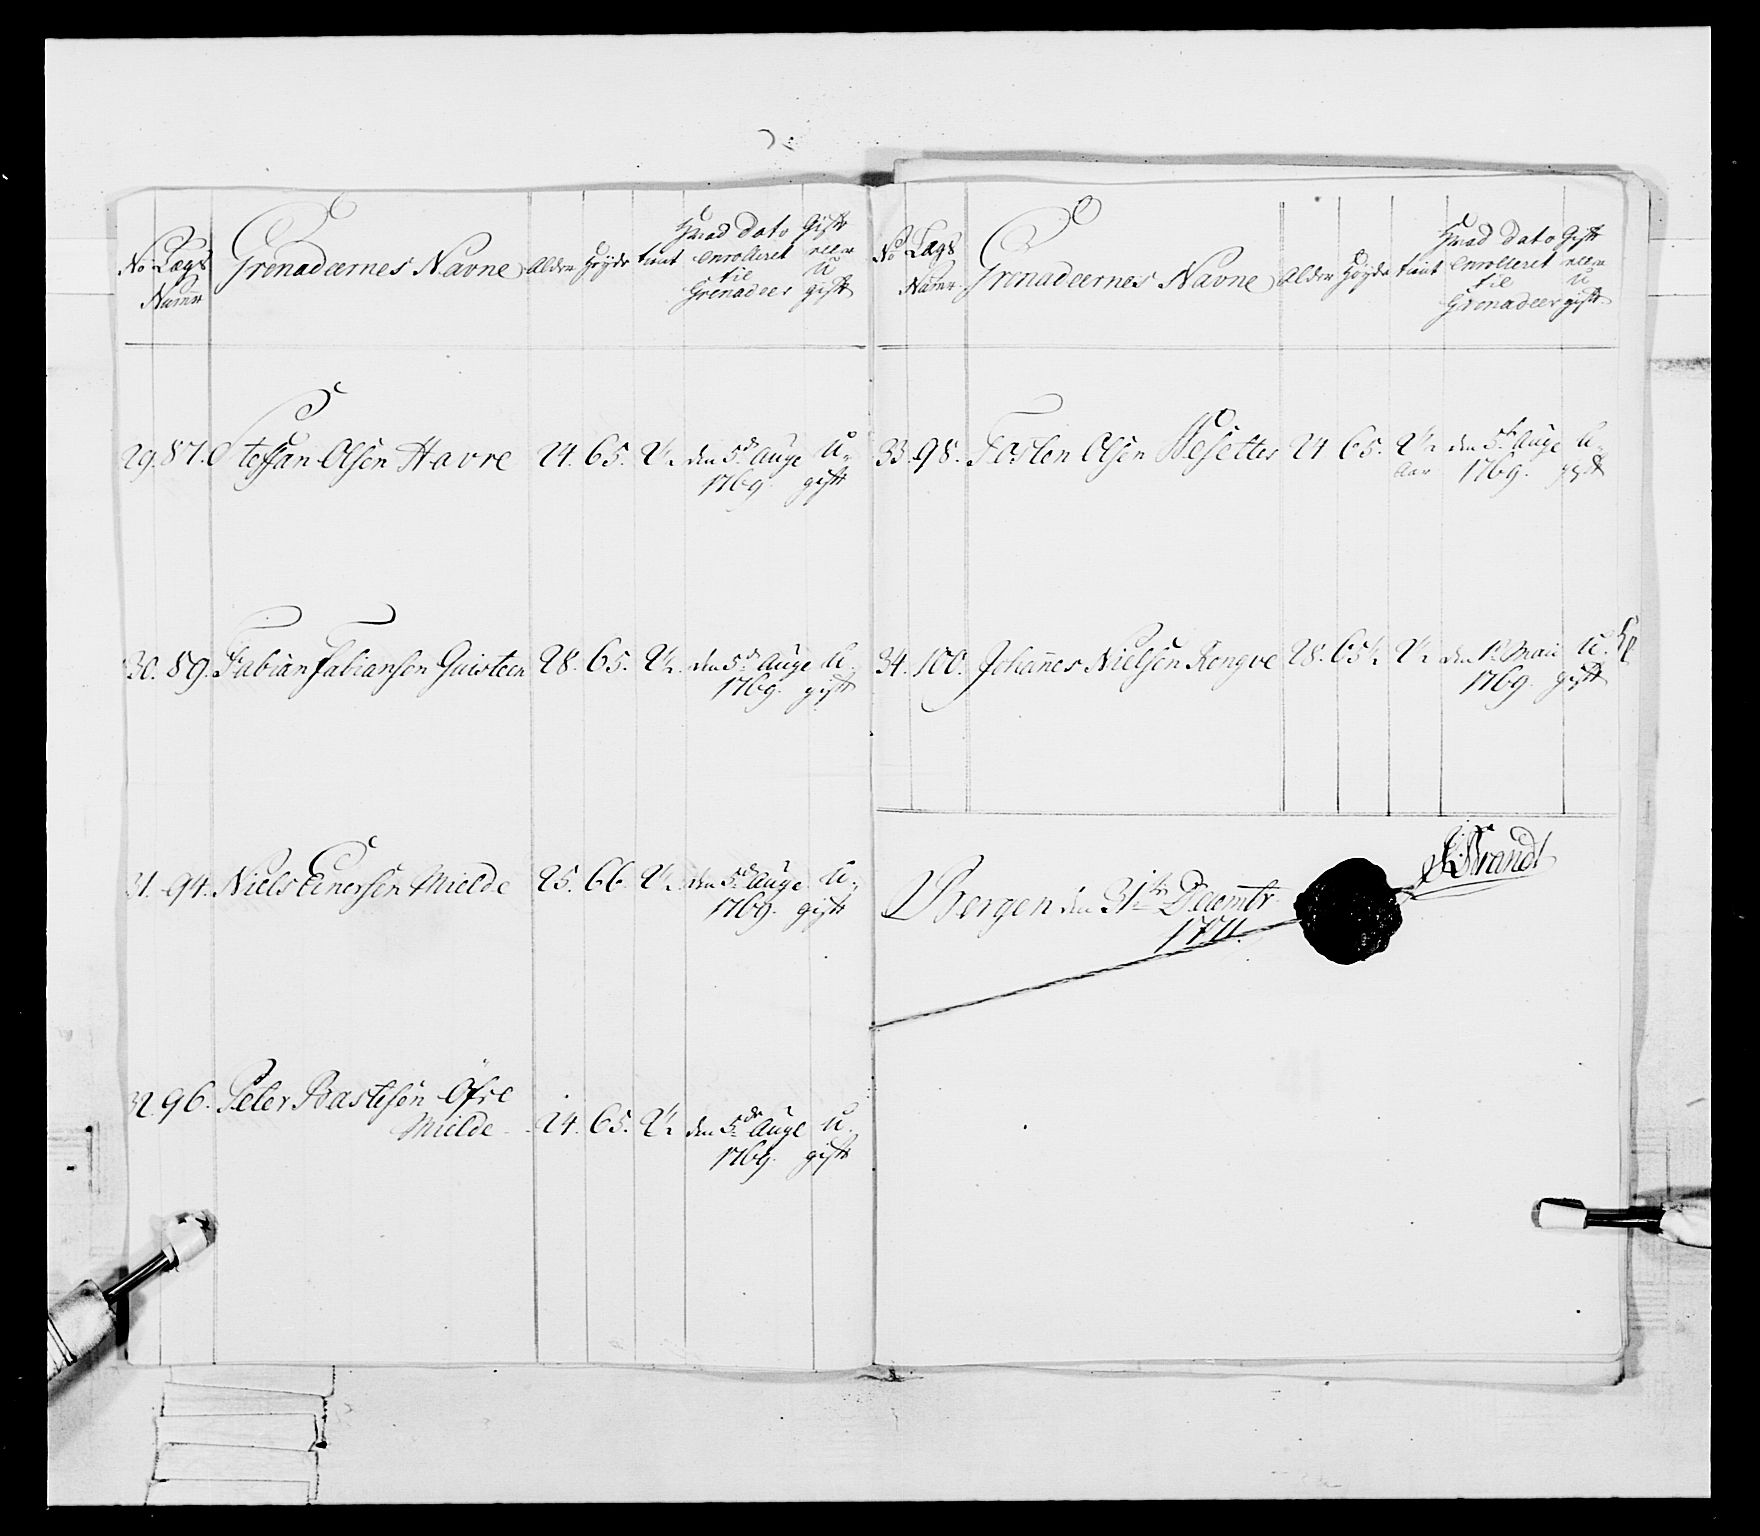 No Lægs Namr Grenadeernes Navne Alder Höyde tient Hvad Dato enrolleret til Grenadeer Gift eller U gift
29. 87. Steffan Olsen Havre 24. 65. 2½ den 5de Auge U-
1769. gift
30. 89. Fabian Fabiansen 28. 65. 2½ den 5de Auge U-
1769. gift
31. 94. Niels Einersen Mielde 25. 66. 2½ den 5de Auge U-
1769. gift
32 96. Peter Bastesen Öfre
Mielde 24. 65. 2½ den 5de Auge U-
1769. gift
No Lægs Namr Grenadeernes Navne Alder Höyde tient Hvad Dato enrolleret til Grenadeer Gift eller U gift
33. 98. Torsten Olsen 24 65. 2½ den 5te Auge U-
Aar 1769. gift
34. 100. Johannes Nielsen Rongve 28. 65½ 2½ den 1te Maii U-
1769. gift
Bergen den 31te Decembr
1771.
Brandt